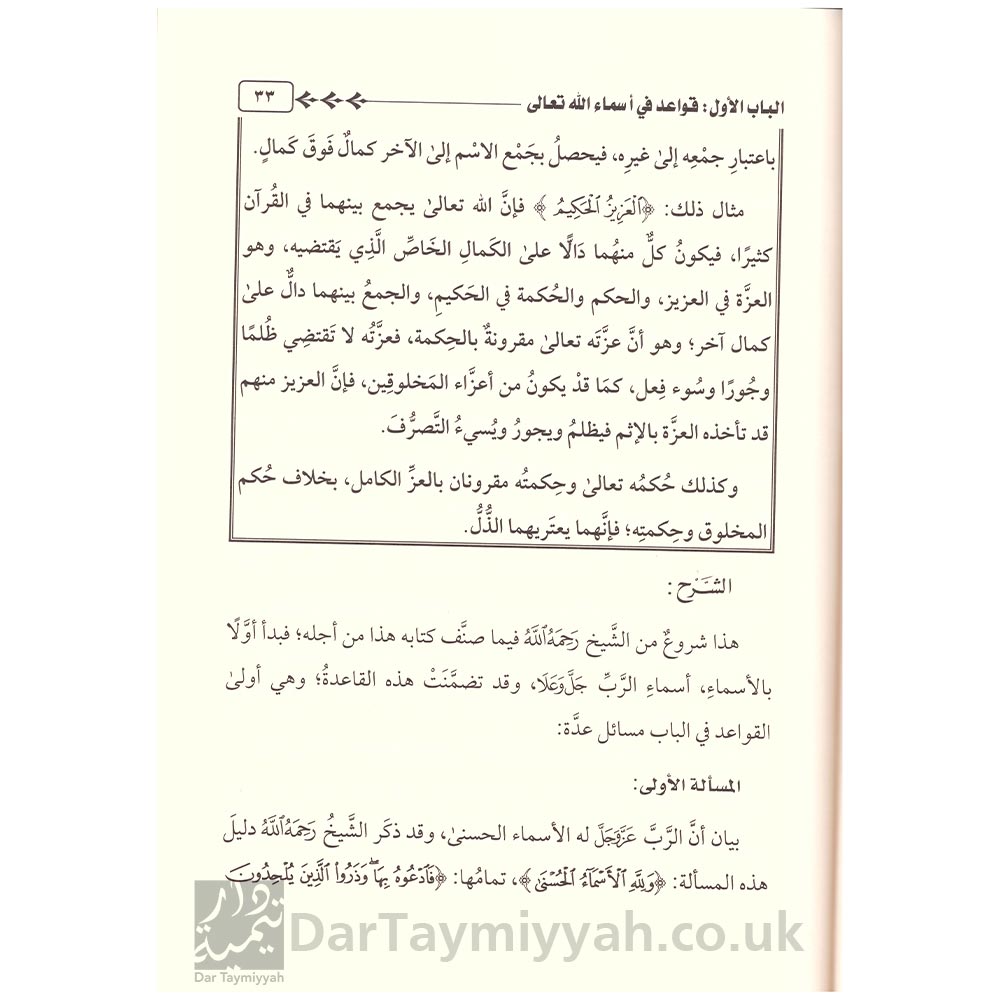 الباب الأول: قواعد في أسماء الله تعالى
٣٣
باعتبارِ جمْعِه إلىٰ غيرِه، فيحصلُ بجَمْع الاسْم إلىٰ الآخر كمالٌ فَوقَ كَمالٍ.
مثال ذلك: ﴿ٱلْعَزِيزُ ٱلْحَكِيمُ﴾ فإنَّ الله تعالىٰ يجمع بينهما في القُرآن
كثيرًا، فيكونُ كلٌّ منهُما دَالًّا علىٰ الكمالِ الخَاصِّ الَّذِي يَقتضيه، وهو
العزَّة في العزيز، والحكم والحُكمة في الحَكيمِ، والجمعُ بينهما دالٌّ علىٰ
كمال آخر؛ وهو أنَّ عزَّتَه تعالىٰ مقرونةٌ بالحِكمة، فعزَّتُه لا تَقتضِي ظُلمًا
وجُورًا وسُوء فِعل، كمَا قدْ يكونُ من أعزَّاء المَخلوقِين، فإنَّ العزيز منهم
قد تأخذه العزَّة بالإثم فيظلمُ ويجورُ ويُسيءُ التَّصرُّفَ.
وكذلك حُكمُه تعالىٰ وحِكمتُه مقرونان بالعزِّ الكامل، بخلاف حُكم
المخلوق وحِكمتِه؛ فإنَّهما يعتَريهما الذُّلُّ.
الشَّرْح:
هذا شروعٌ من الشَّيخ رَحِمَهُ ٱللَّهُ فيما صنَّف كتابه هذا من أجله؛ فبدأ أوَّلًا
بالأسماءِ، أسماءِ الرَّبِّ جَلَّ وَعَلَا، وقد تضمَّنَتْ هذه القاعدةُ؛ وهي أولىٰ
القواعد في الباب مسائل عدَّة:
المسألة الأولى:
بيان أنَّ الرَّبَّ عَزَّ وَجَلَّ له الأسماء الحسنىٰ، وقد ذكَر الشَّيخُ رَحِمَهُ ٱللَّهُ دليلَ
هذه المسألة: ﴿وَلِلَّهِ ٱلْأَسْمَآءُ ٱلْحُسْنَىٰ﴾، تمامُها: ﴿فَٱدْعُوهُ بِهَا ۖ وَذَرُوا۟ ٱلَّذِينَ يُلْحِدُونَ
دار تيمية
Dar Taymiyyah
DarTaymiyyah.co.uk